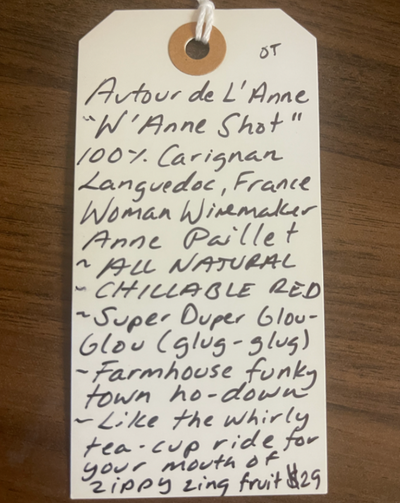 OT
Autour de L'Anne
"W'Anne Shot"
100% Carignan
Languedoc, France
Woman Winemaker
Anne Paillet
~ ALL NATURAL
~ CHILLABLE RED
~ Super Duper Glou-
Glou (glug-glug)
~ Farmhouse funky
town ho-down
~ Like the whirly
tea-cup ride for
your mouth of
zippy zing fruit $29